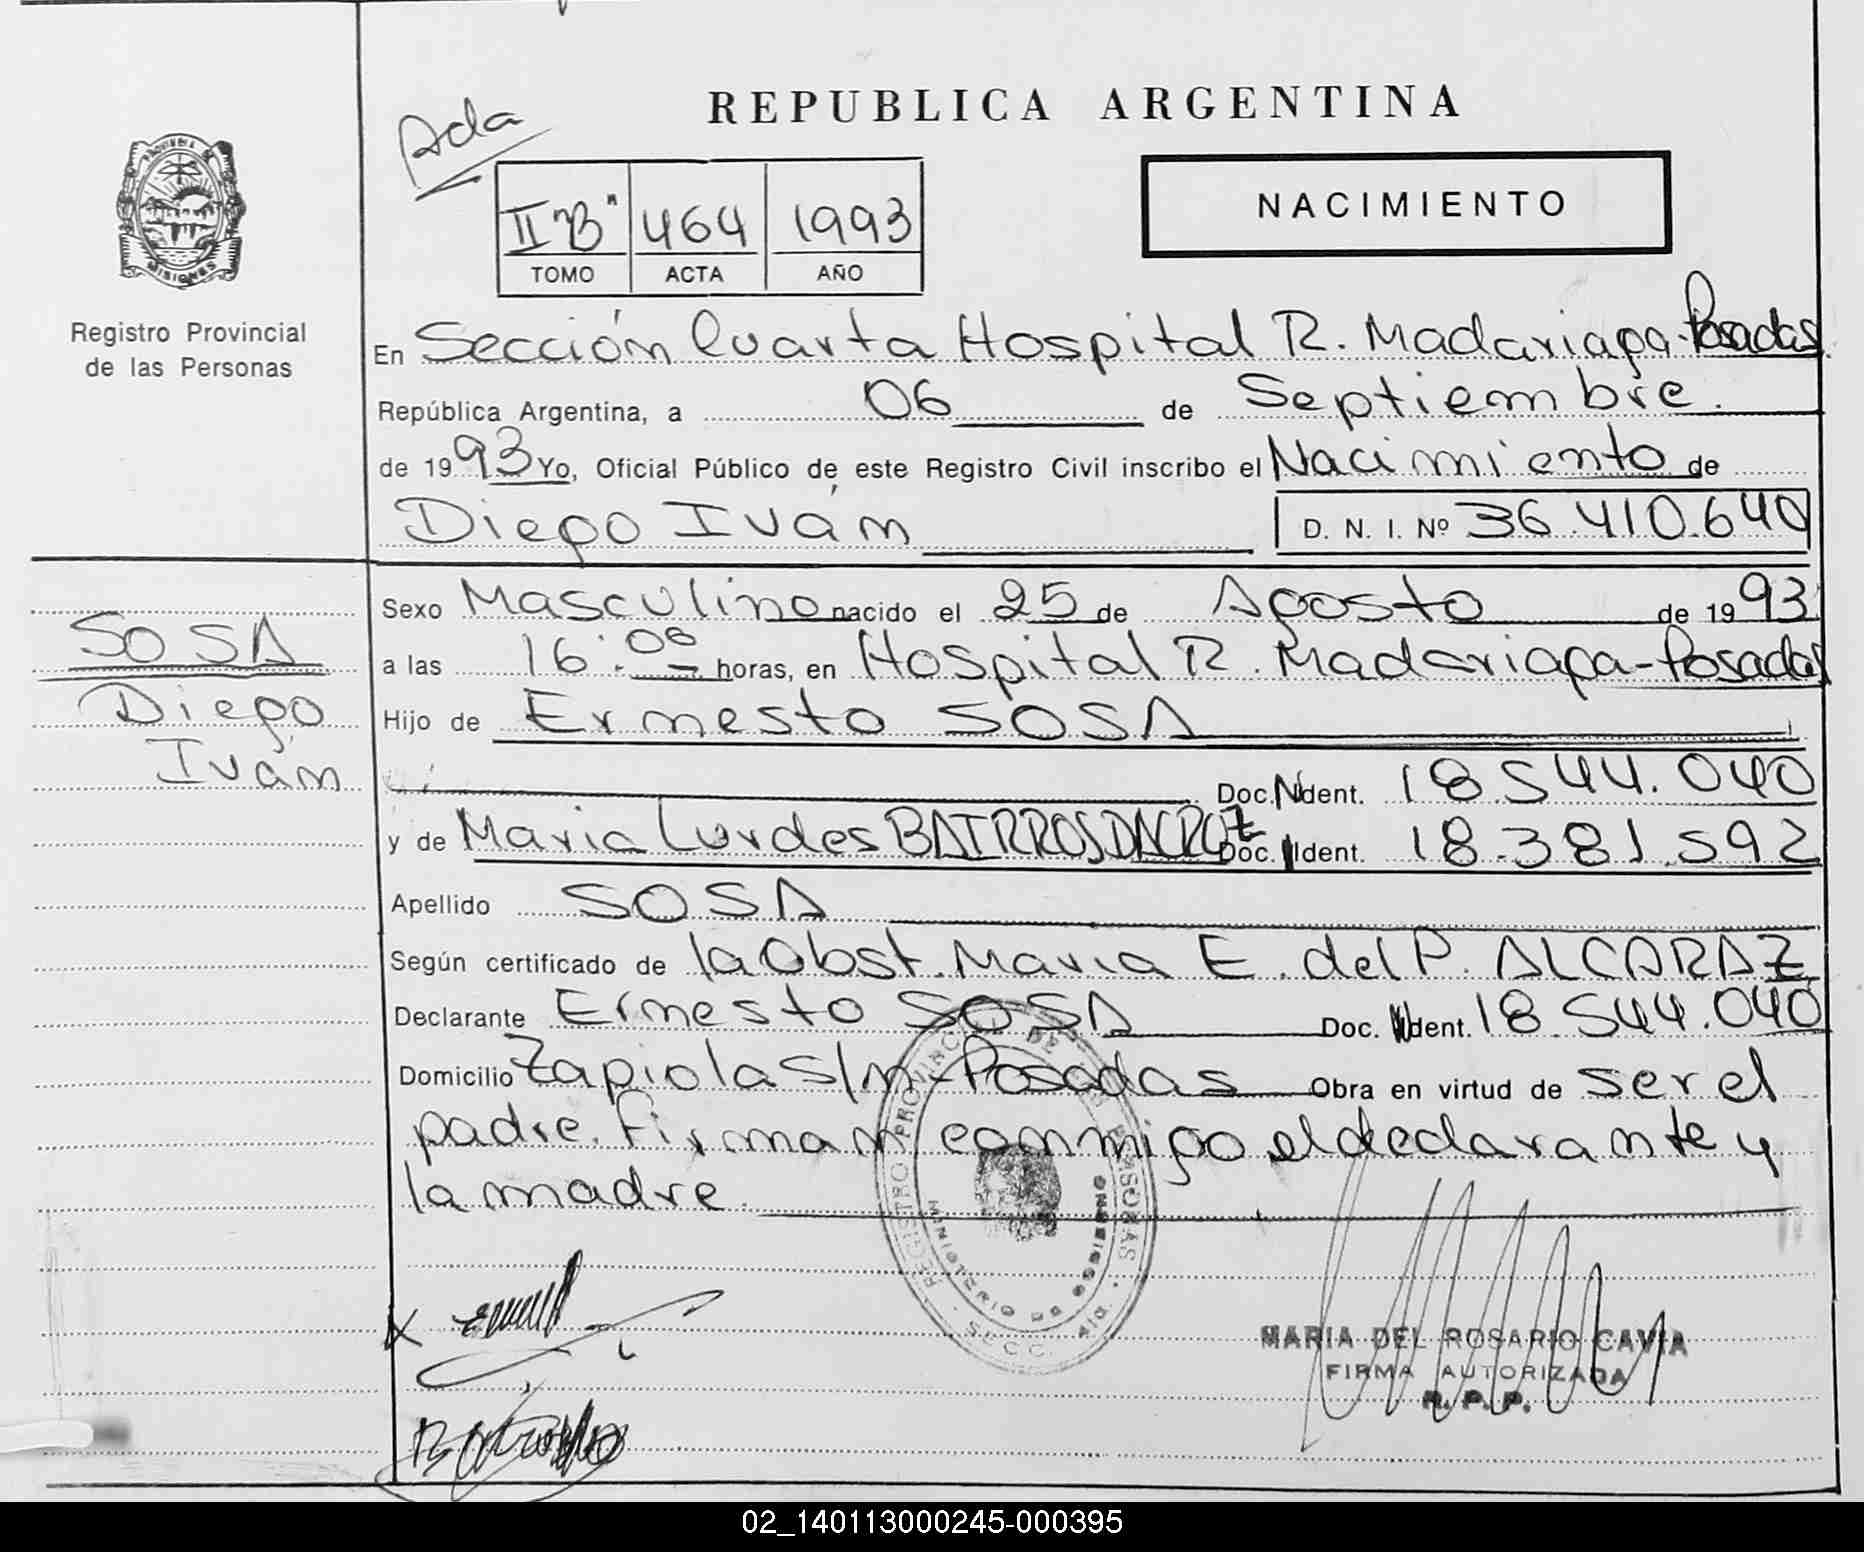 PROVINCIA DE
MISIONES
Registro Provincial
de las Personas
Ada
REPUBLICA ARGENTINA
NACIMIENTO
II "B" 464 1993
TOMO ACTA AÑO
En Sección Cuarta Hospital R. Madariaga-Posadas
República Argentina, a 06 de Septiembre.
de 1993 Yo, Oficial Público de este Registro Civil inscribo el Nacimiento de
Diego Iván D. N. I. Nº 36.410.640
Sexo Masculino nacido el 25 de Agosto de 1993
a las 16:00 horas, en Hospital R. Madariaga-Posadas
Hijo de Ernesto SOSA
Doc. N Ident. 18.544.040
y de Maria Lurdes BAIRROS DACRUZ Doc. Ident. 18.381.592
Apellido SOSA
Según certificado de la Obst. Maria E. del P. ALCARAZ
Declarante Ernesto SOSA Doc. Ident. 18.544.040
Domicilio Zapiola S/n-Posadas Obra en virtud de ser el
padre. Firman conmigo el declarante y
la madre.
SOSA
Diego
Iván
REGISTRO PROVINCIAL DE LAS PERSONAS
MINISTERIO DE GOBIERNO
SECC. 4ta.
MARIA DEL ROSARIO CAVIA
FIRMA AUTORIZADA
R. P. P.
02_140113000245-000395